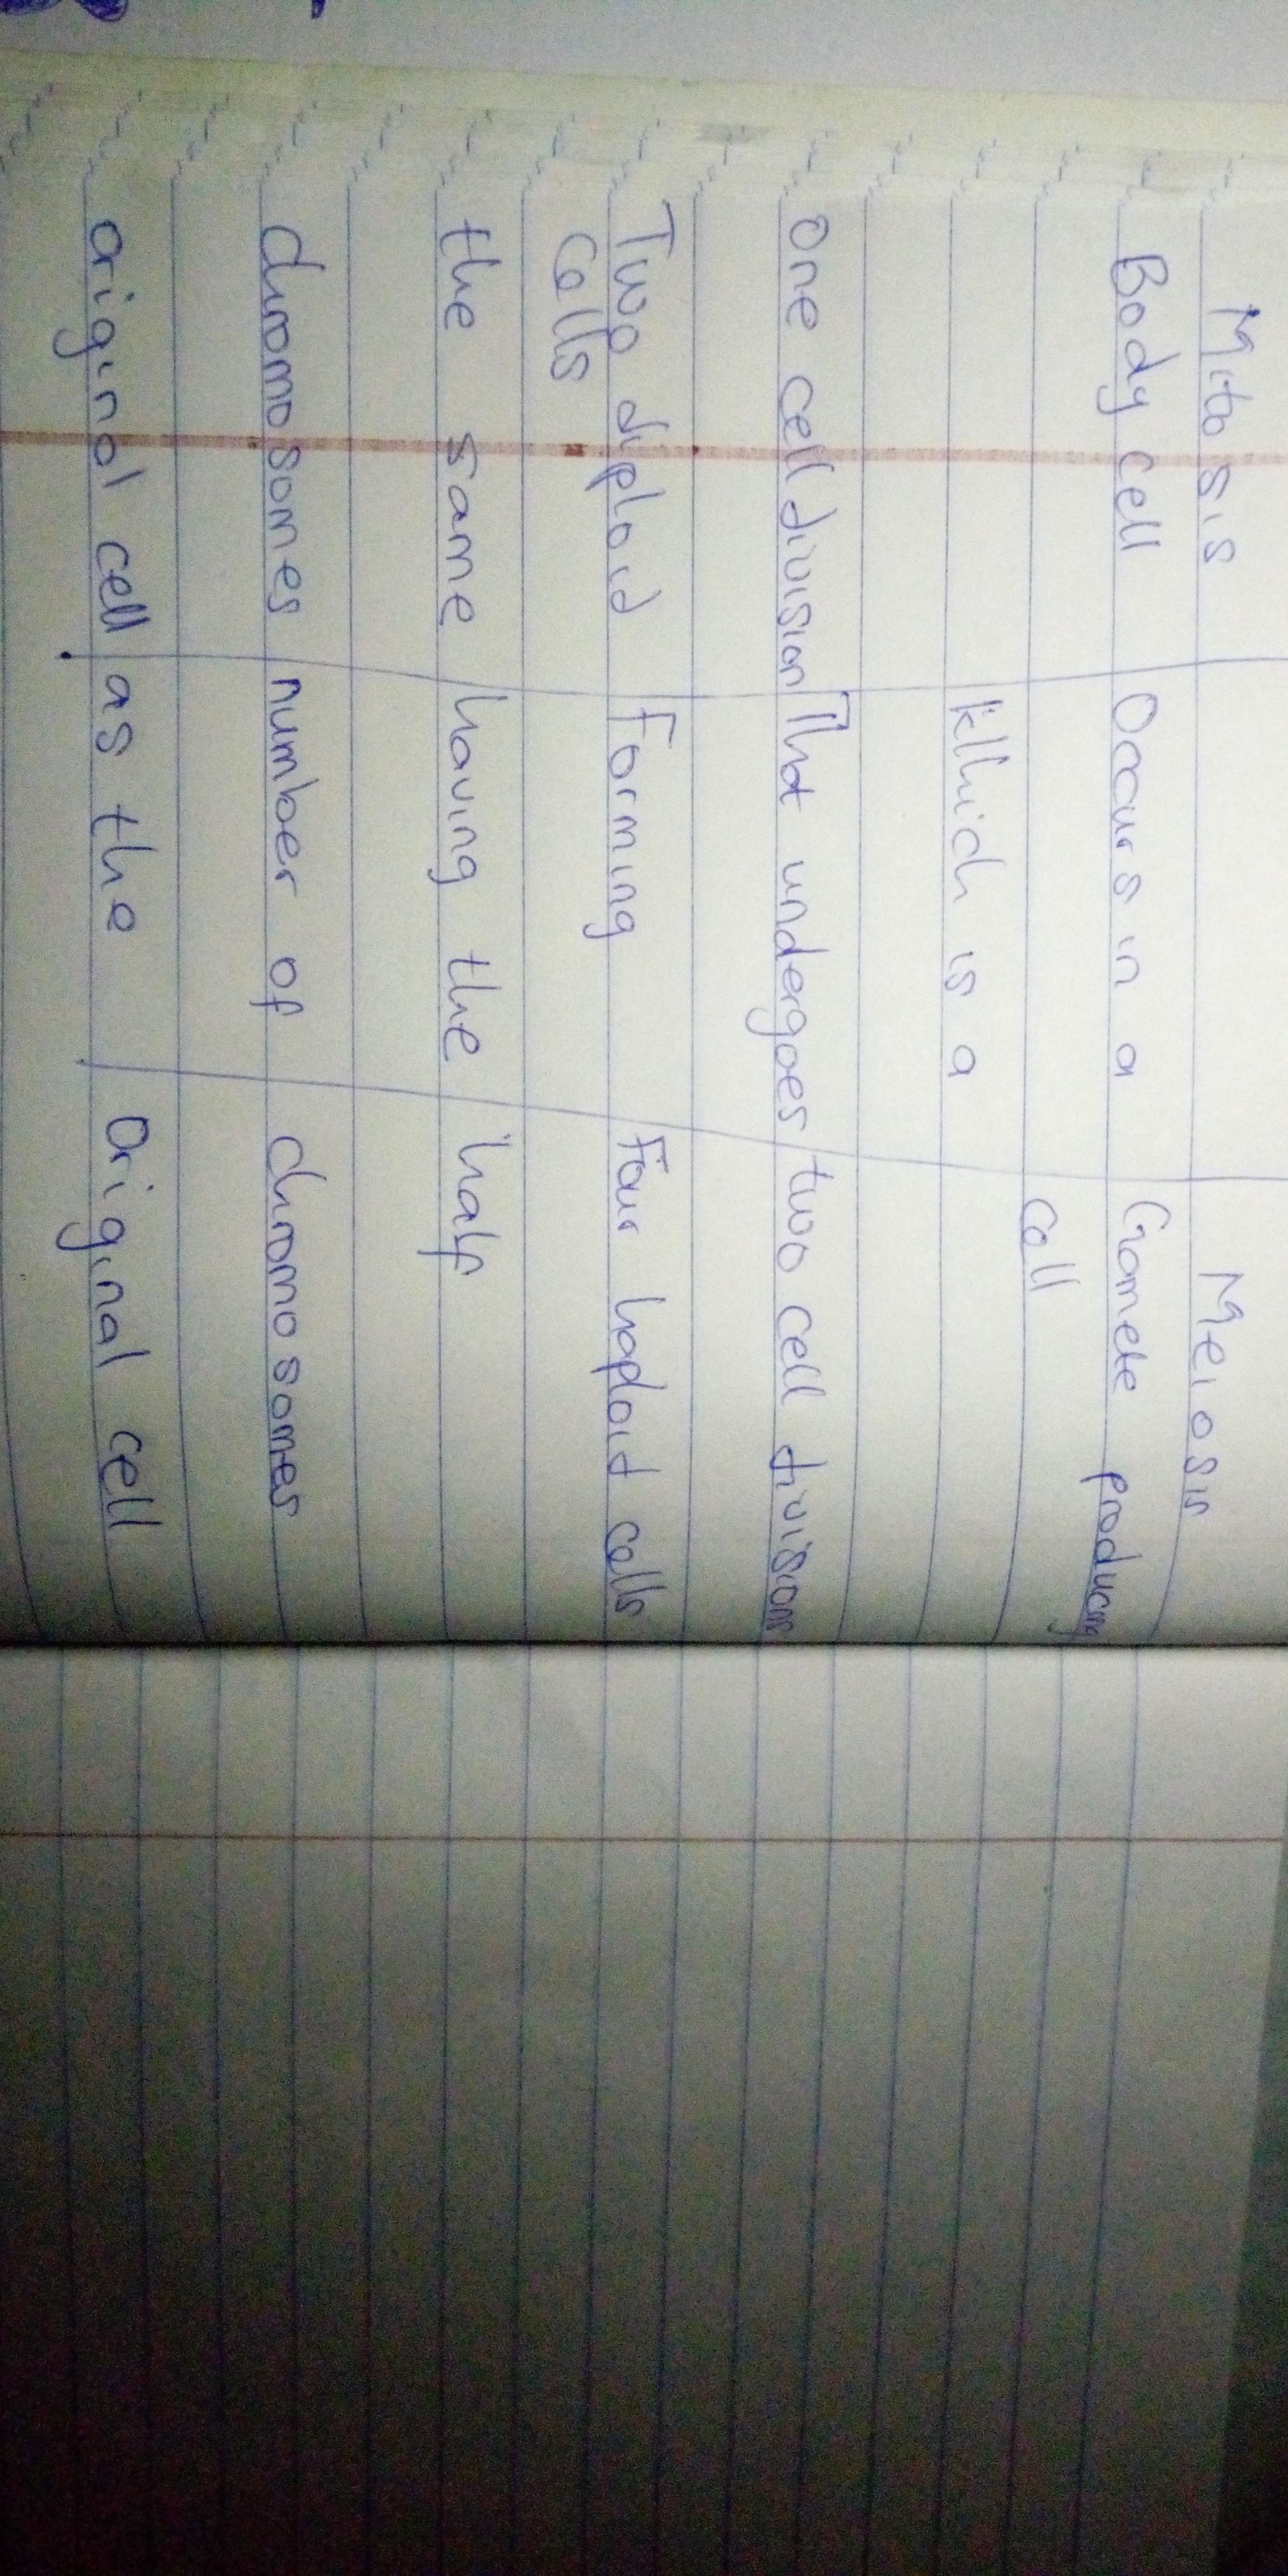 Mitosis Meiosis
Body cell Occurs in a Gamete producing
cell
which is a
one cell division That undergoes two cell divisions
Two diploid Forming Four haploid cells
cells
the same having the half
chromosomes number of chromosomes
original cell as the original cell